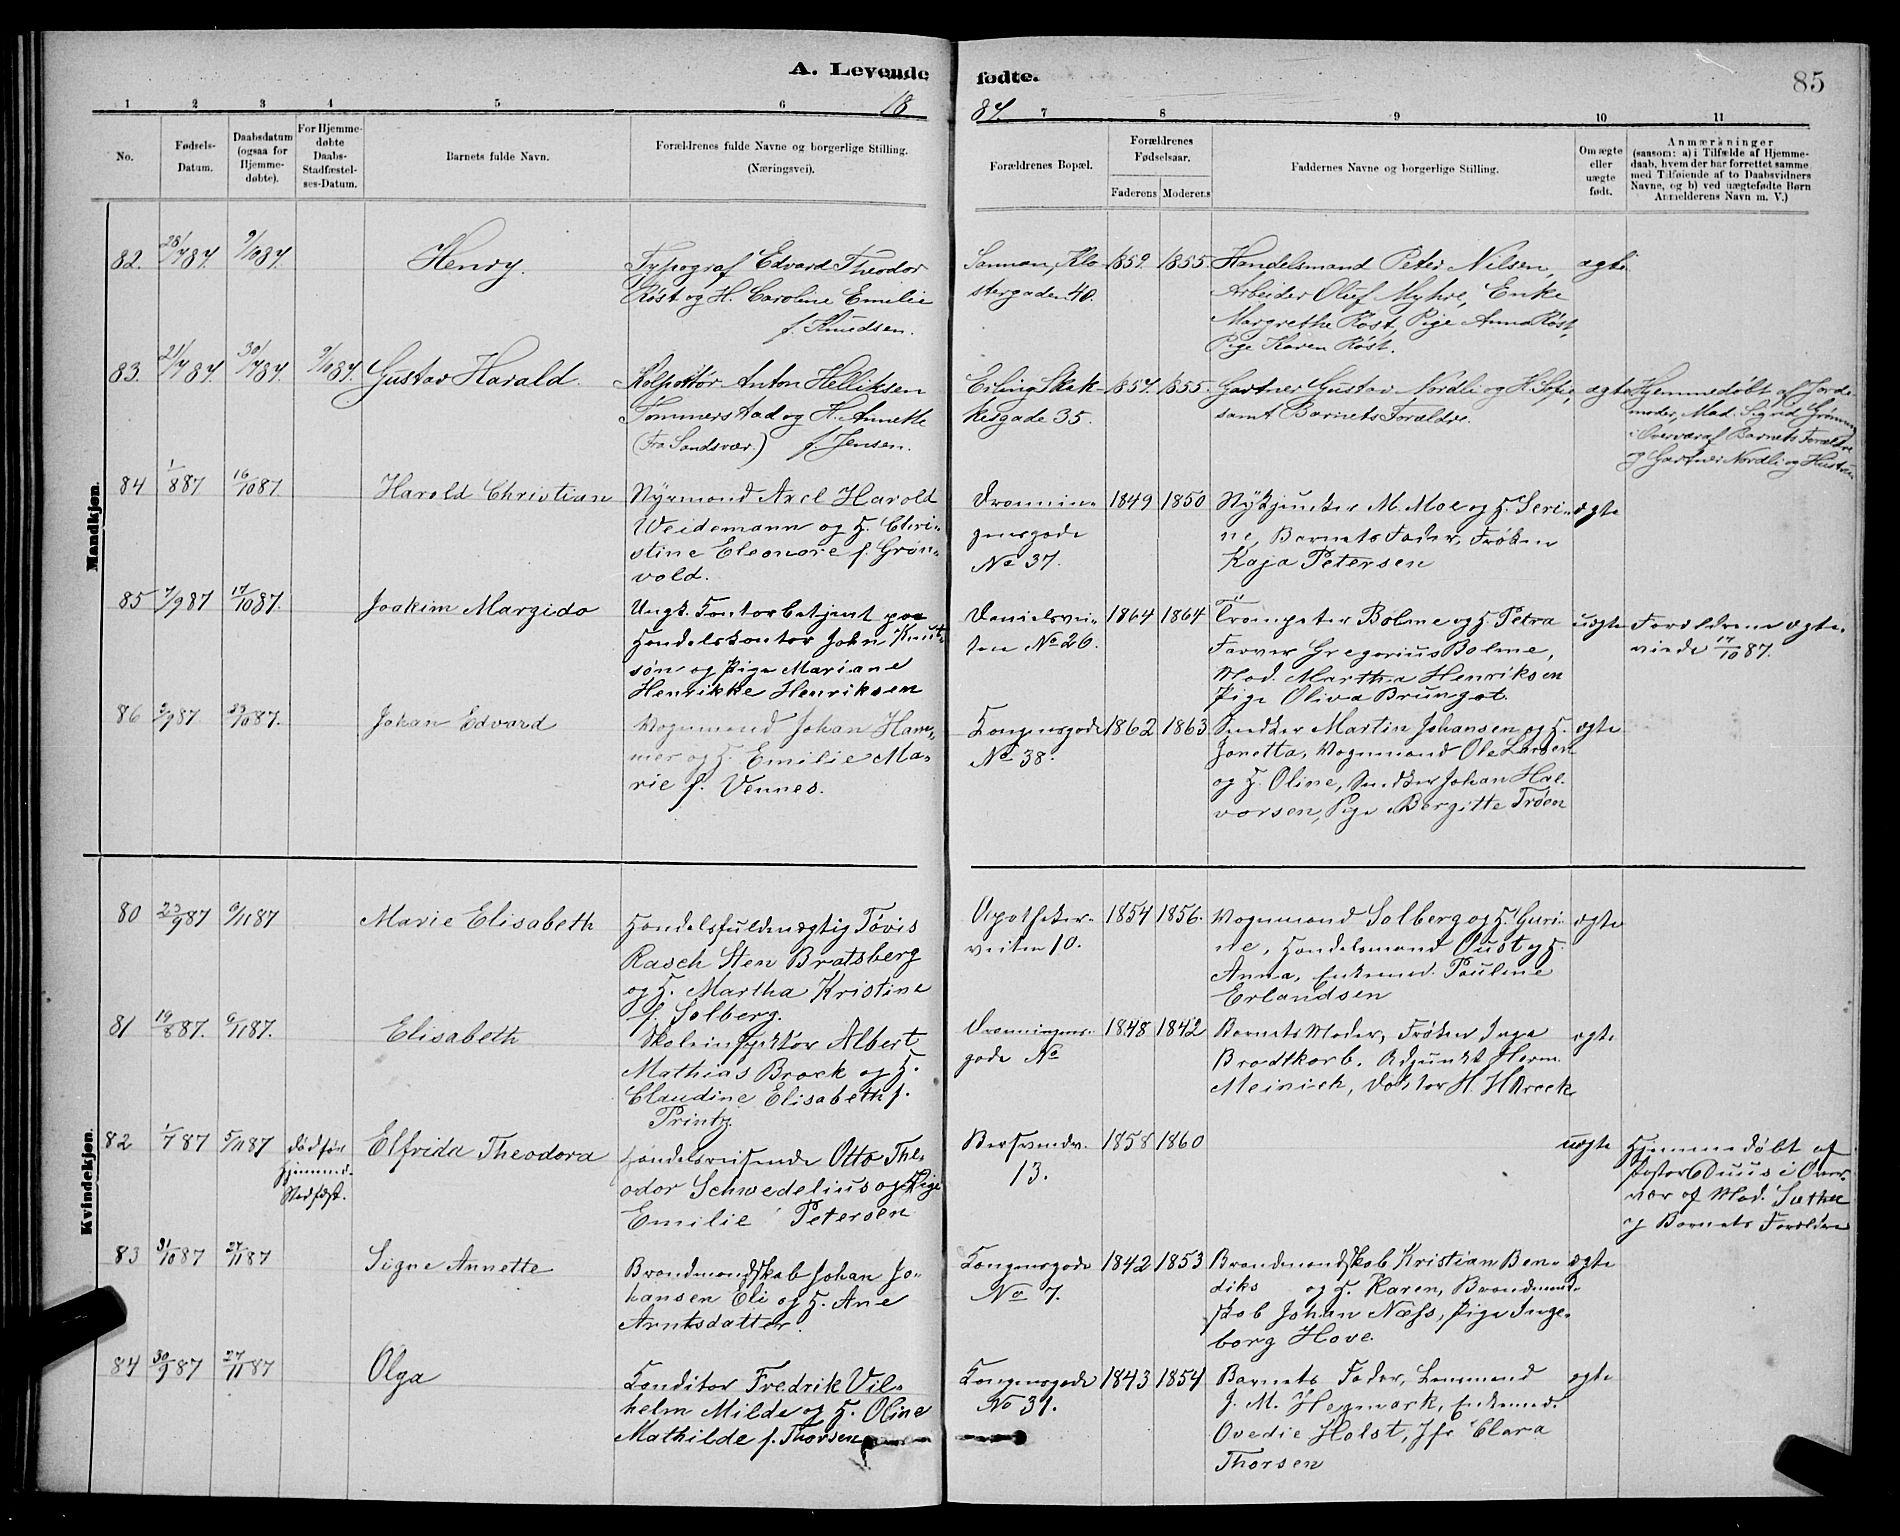 A. Levende fødte.
85
18 87.
1 2 3 4 5 6 7 8 9 10 11
No.
Fødsels-
Datum.
Daabsdatum
(ogsaa for
Hjemme-
døbte).
For Hjemme-
døbte
Daabs-
Stadfæstel-
ses-Datum.
Barnets fulde Navn.
Forældrenes fulde Navne og borgerlige Stilling.
(Næringsvei).
Forældrenes Bopæl.
Forældrenes
Fødselsaar.
Faderens Moderens
Faddernes Navne og borgerlige Stilling.
Om ægte
eller
uægte
født.
Anmærkninger
(saasom: a) i Tilfælde af Hjemme-
daab, hvem der har forrettet samme
med Tilføiende af to Daabsvidners
Navne, og b) ved uægtefødte Børn
Anmelderens Navn m. V.)
Mandkjøn.
82. 28/7 87. 9/10 87. Henry.
Typograf Edvard Theodor
Røst og H. Caroline Emilie
f. Knudsen.
Sannan, Klo-
stergaden 40.
1859. 1855.
Handelsmand Peter Nilsen,
Arbeider Oluf Myhre, Enke
Margrethe Røst, Pige Anna Røst,
Pige Karen Røst.
ægte
83. 21/7 87. 30/7 87. 9/10 87. Gustav Harald.
Kolportør Anton Helliksen
Tommerstad og H. Annette
(Fra Sandsvær) f. Jensen.
Erling Skak-
kesgade 35.
1857. 1855.
Gartner Gustav Nordli og H. Sofie
samt Barnets Forældre.
ægte
Hjemmedøbt af Jorde-
moder, Mad. Sigrid
i Overvær af Barnets Forældre
og Gartner Nordli og Hustru
84 1/8 87 16/10 87 Harald Christian
Axel Harald
Weidemann og H. Chri-
stine Eleonore f. Grøn-
vold.
Dronnin-
gensgade
No 37.
1849 1850
M. Moe og H. Seri-
ne, Barnets Fader, Frøken
Kaja Petersen
ægte
85 7/9 87 17/10 87. Joakim Margido
Ungk. Kontorbetjent paa
Handelskontor John Knut-
søn og Pige Mariane
Henrikke Henriksen
Danielsvei-
ten No 26.
1864 1864
Trompeter Bolme og H. Petra
Farver Gregorius Bolme,
Mad. Martha Henriksen
Pige Oliva Brungot.
uægte
Forældrene ægte-
viede 17/10 87.
86 /9 87 23/10 87. Johan Edvard
Vognmand Johan Ham-
mer og H. Emilie Ma-
rie f. Vennes.
Kongensgade
No 38.
1862 1863
Snedker Martin Johansen og H.
Jonetta, Vognmand Ole Larsen
og H. Oline, Snedker Johan Hal-
vorsen, Pige Bergitte Trøen
ægte
Kvindekjøn.
80 23/9 87 6/11 87 Marie Elisabeth
Handelsfuldmægtig Tøvis
Rasch Sten Bratsberg
og H. Martha Kristine
f. Solberg.
Apotheker-
veiten 10.
1854 1856.
Vognmand Solberg og H. Guri-
ne, Handelsmand Oust og H.
Anna, Enkemad. Pauline
Erlandsen
ægte
81 19/8 87. 6/11 87. Elisabeth
Skoleinspektør Albert
Mathias Brock og H.
Claudine Elisabeth f.
Printz.
Dronningens-
gade No
1848 1842
Barnets Moder, Frøken Inga
Brodtkorb, Adjunkt Herm.
Meinich, Doktor H. H. Areck
ægte
82 1/7 87 5/11 87 død før
Hjemmed.
Stadfæst.
Elfrida Theodora
Handelsreisende Otto The-
odor Schwedelius og Pige
Emilie Petersen
13.
1858 1860
uægte
Hjemmedøbt af
Pastor Duus i Over-
vær af Mad. Sæther
og Barnets Forældre
83 31/10 87 27/11 87 Signe Annette
Brandmandskab Johan Jo-
hansen Eli og H. Ane
Arntsdatter.
Kongensgade
No 7.
1842 1853
Brandmandskab Kristian Ben-
diks og H. Karen, Brandmand-
skab Johan Næss, Pige Inge-
borg Hove.
ægte
84 30/9 87 27/11 87 Olga
Konditor Fredrik Vil-
helm Milde og H. Oline
Mathilde f. Thorsen
Kongensgade
No 31.
1843 1854
Barnets Fader,
J. M. Hegmark, Enkemad.
Ovedie Holst, Jfr Clara
Thorsen
ægte